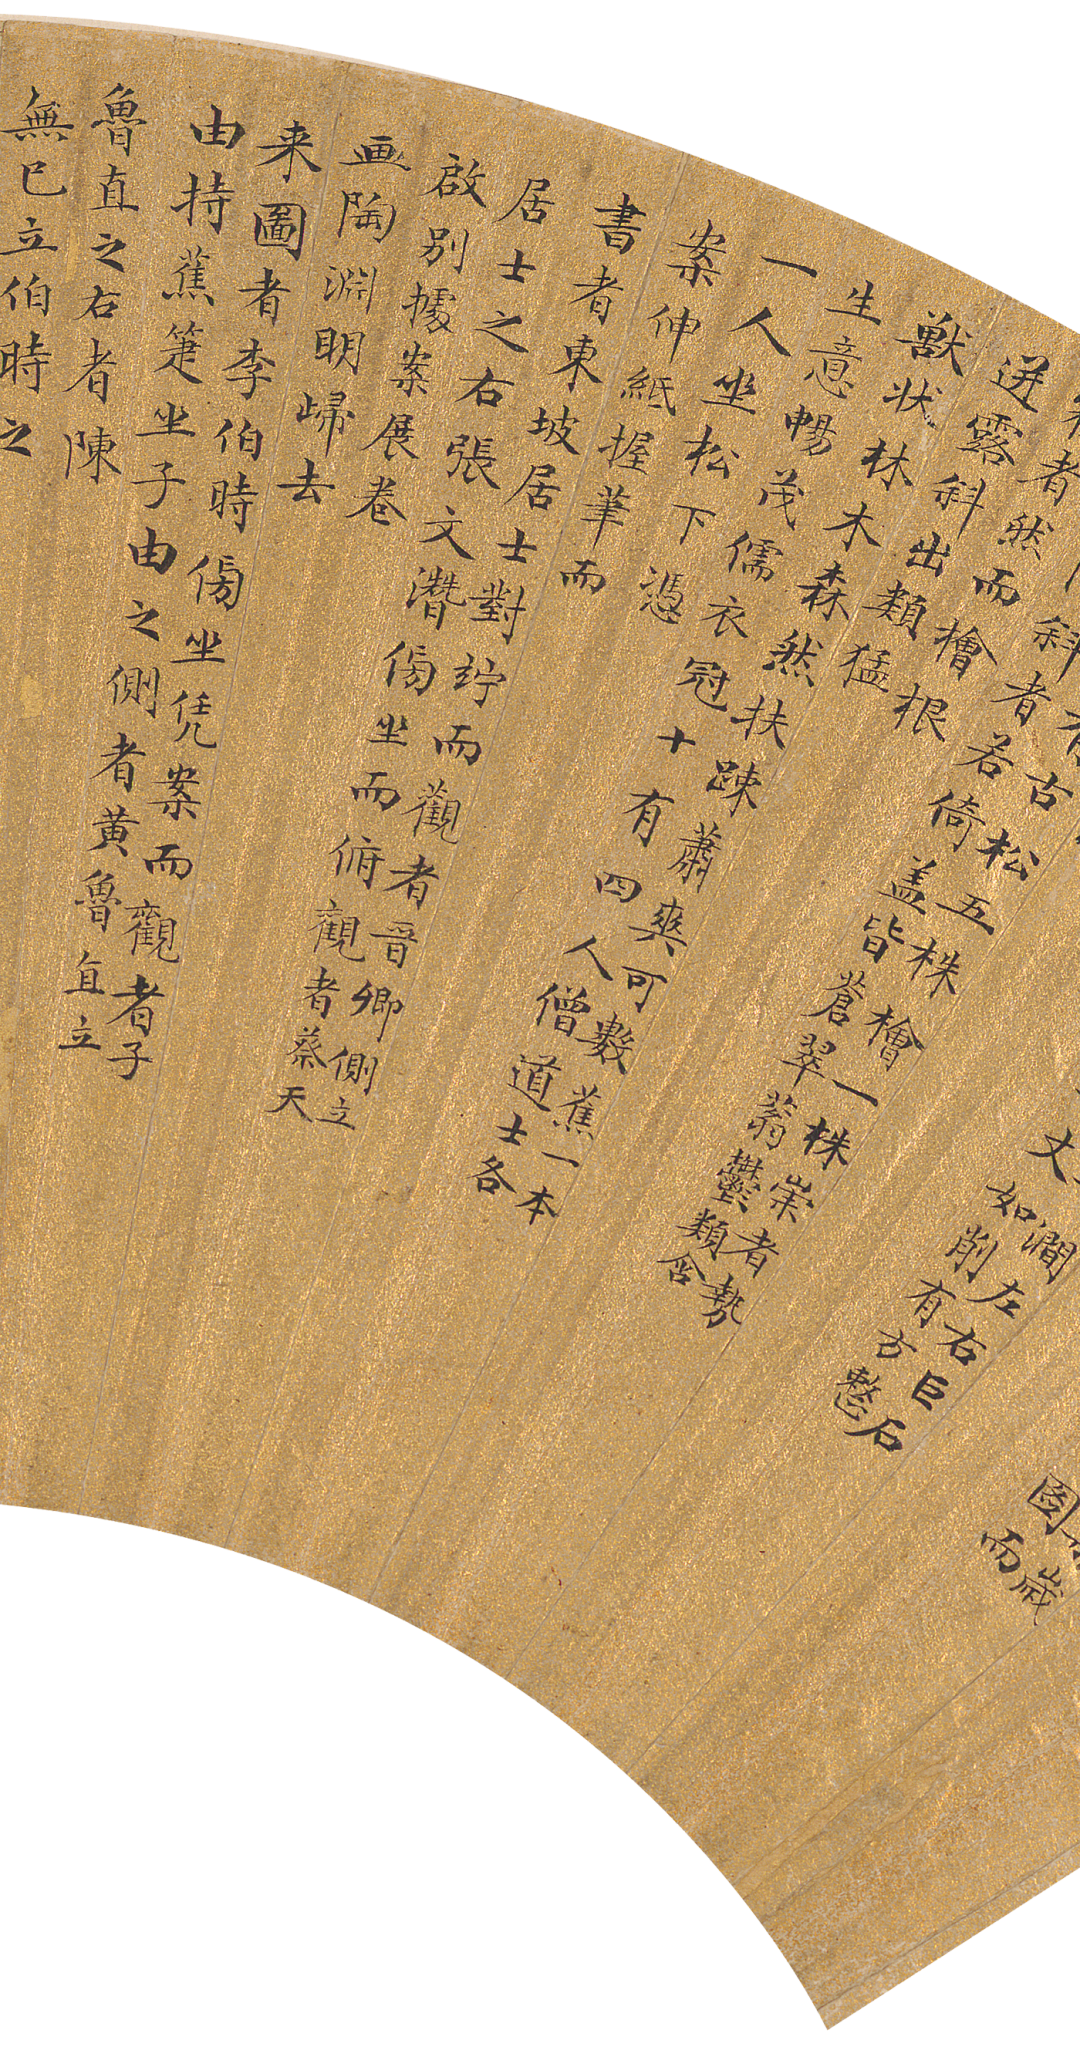 歲
圖
而
澗左右巨石
丈如削有方整
古松五株檜一株崇者勢
斜者若倚盖皆蒼翠蓊鬱類含
者然而檜根
迸露斜出類猛
獸状林木森然扶踈蕭爽可數蕉一本
生意暢茂儒衣冠十有四人僧道士各
一人坐松下憑
案伸紙握筆而
書者東坡居士對竚而觀者晋卿側立
居士之右張文潛傍坐而俯觀者蔡天
啟別據案展卷
画陶淵明歸去
来圖者李伯時傍坐凭案而觀者子
由持蕉箑坐子由之側者黄魯直立
魯直之右者陳
無已立伯時之